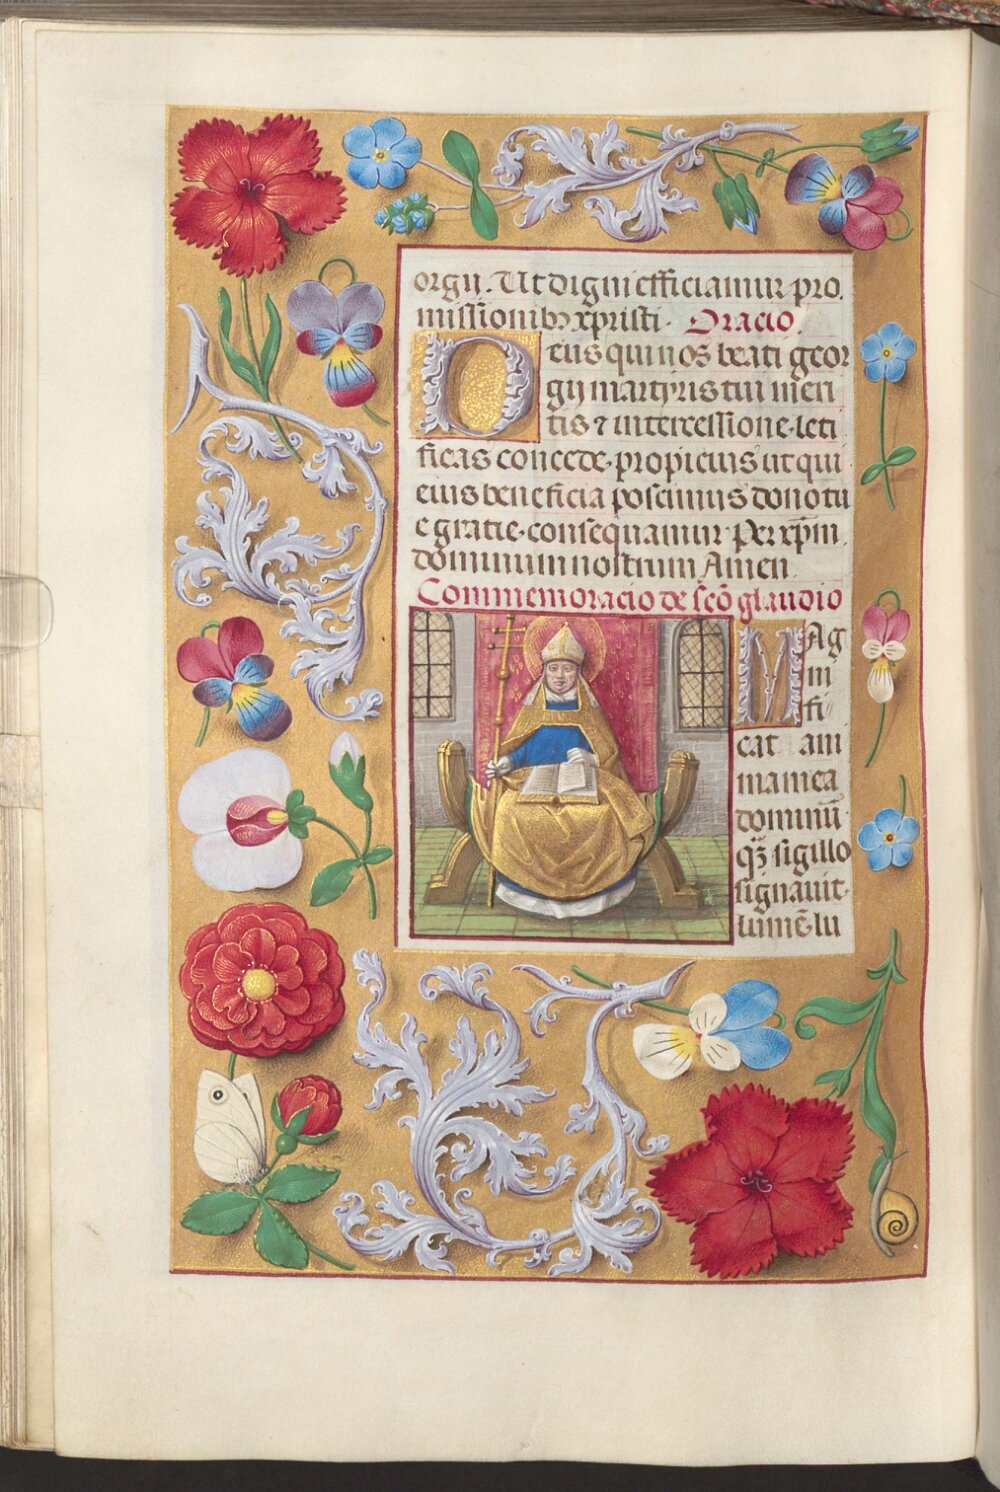 orgii. Ut digni efficiamur pro.
missionibꝫ xp̄risti. Oracio.
Deus qui nos beati geor
gii martyris tui meri
tis ⁊ intercessione. leti
ficas concede. propicius ut qui
eius beneficia poscimus dono tu
e gratie. consequamur. Per xp̄m
dominum nostrum Amen.
Commemoracio de sc̄o glaudio
Mag
ni
fi
cat ani
ma mea
dominū
qꝫ sigillo
signauit.
lumē lu